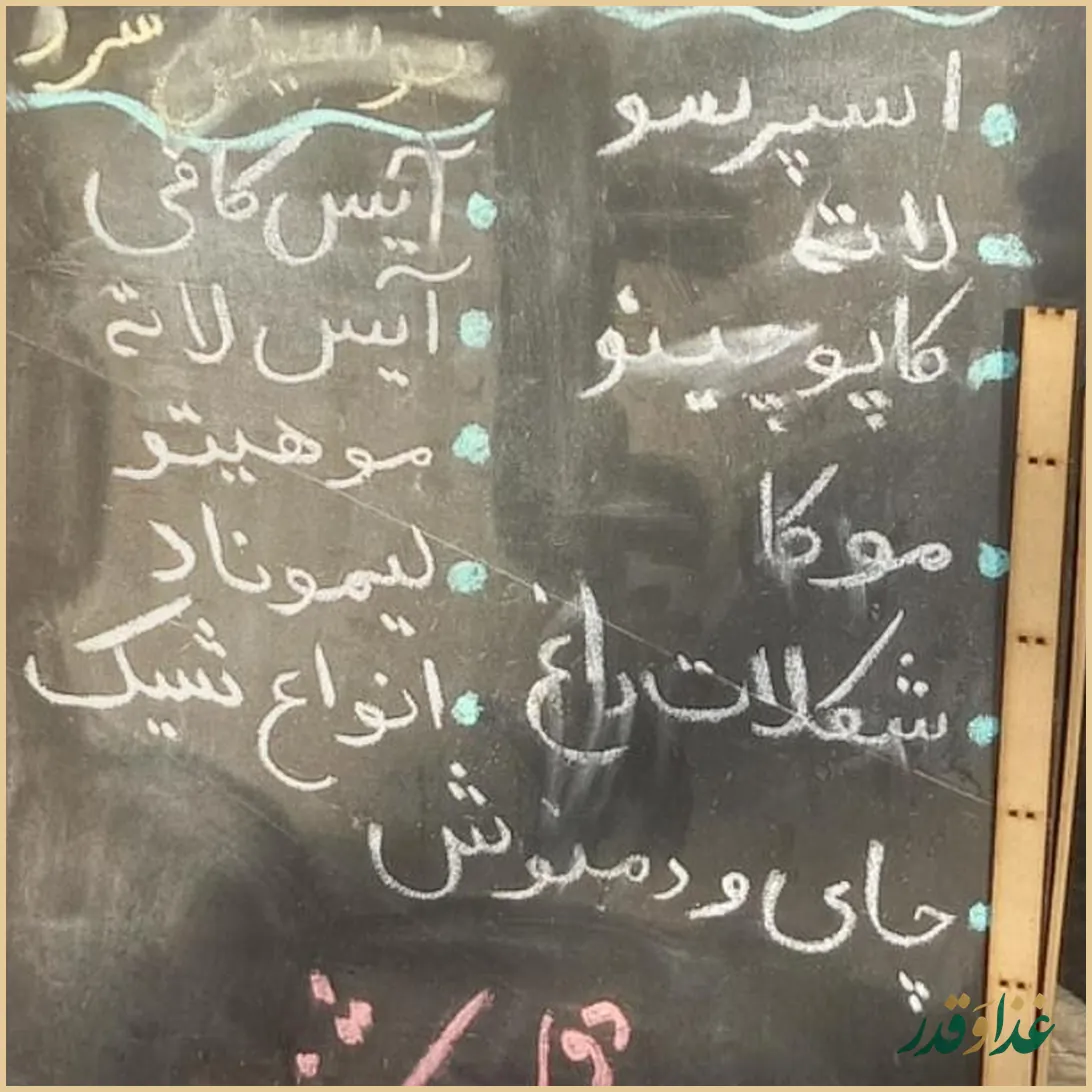 اسپرسو
لاته
کاپوچینو
موکا
شکلات داغ
چای و دمنوش
سرد
آیس کافی
آیس لاته
موهیتو
لیموناد
انواع شیک
غذا و قدر